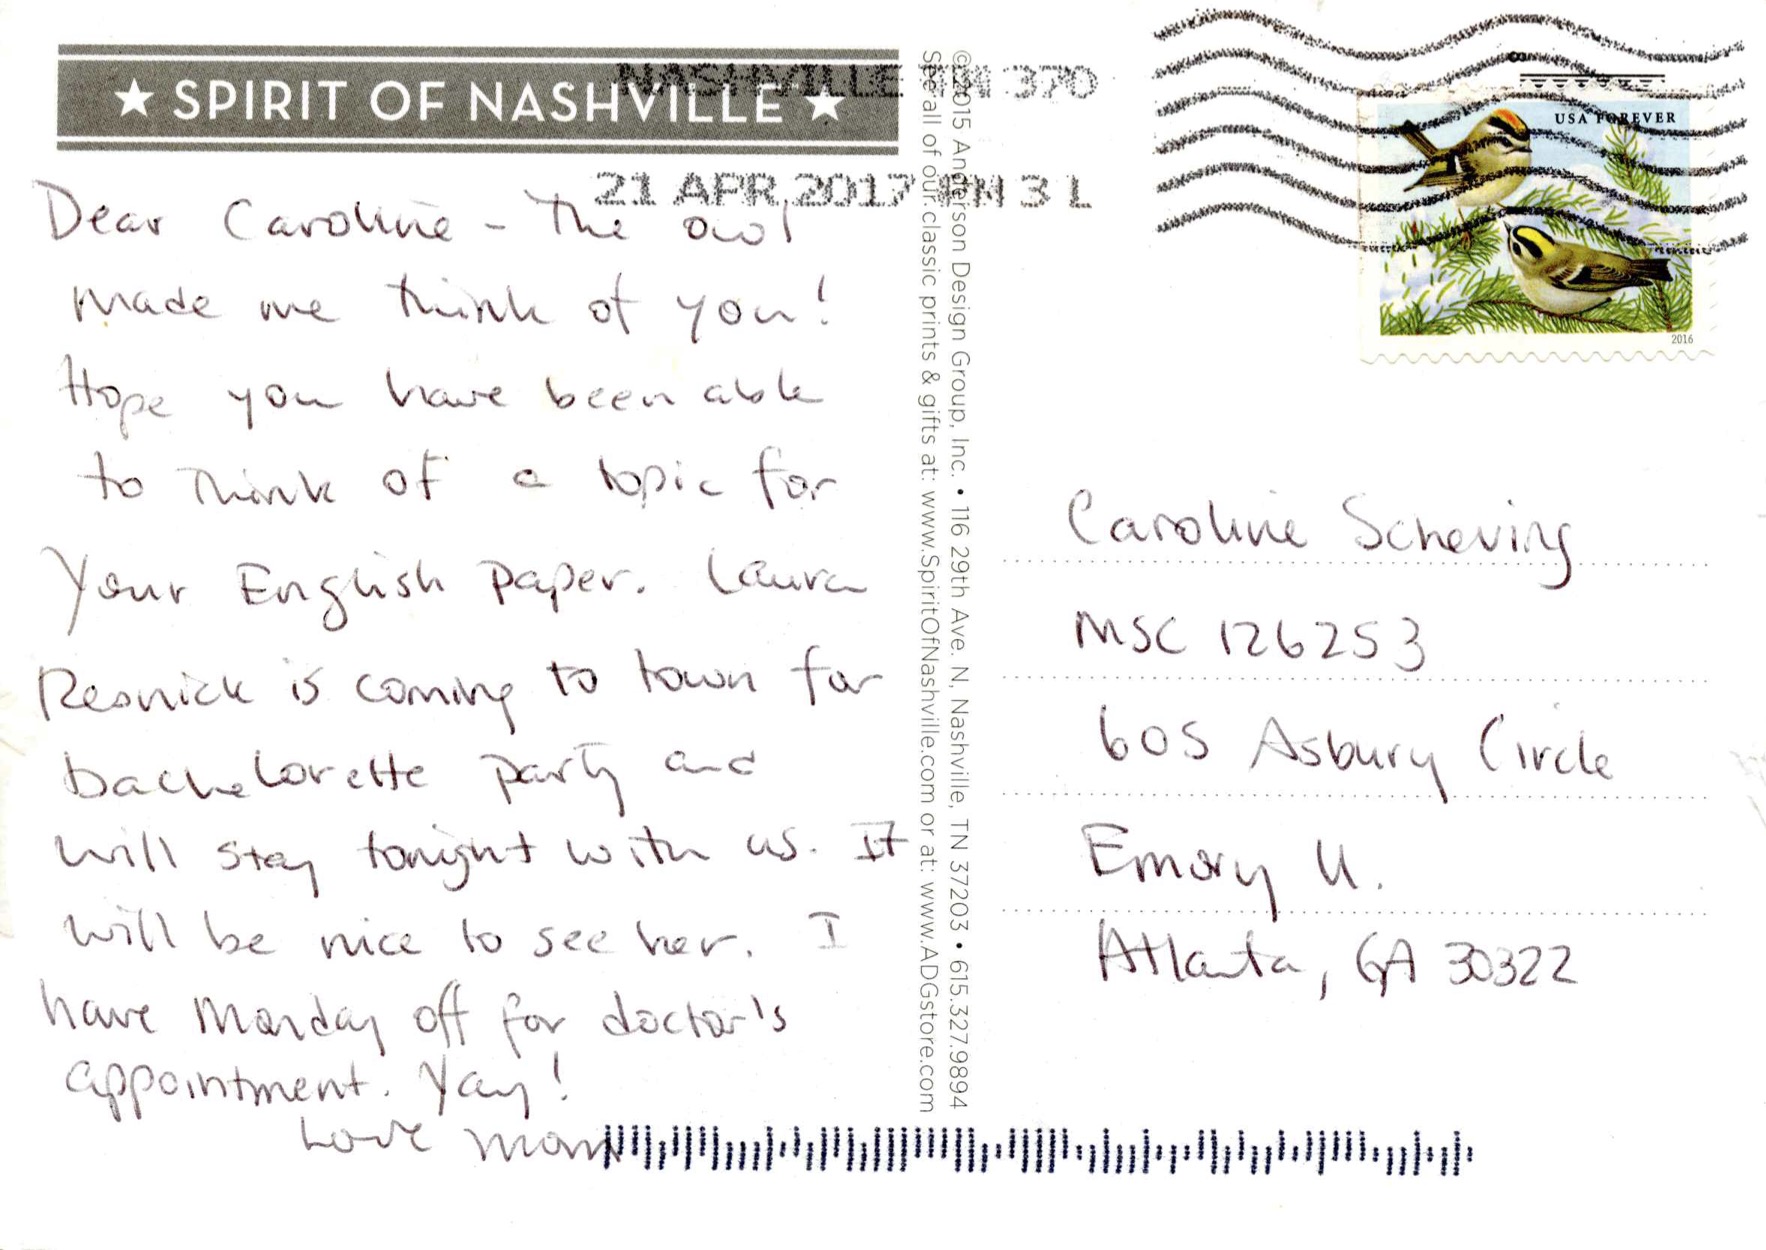 ★ SPIRIT OF NASHVILLE ★
NASHVILLE TN 370
21 APR 2017 PM 3 L
USA FOREVER
2016
Dear Caroline - The owl
made me think of you!
Hope you have been able
to think of a topic for
your English paper. Laura
Resnick is coming to town for
bachelorette party and
will stay tonight with us. It
will be nice to see her. I
have Monday off for doctor's
appointment. Yay!
Love Mom
©2015 Anderson Design Group, Inc. • 116 29th Ave. N, Nashville, TN 37203 • 615.327.9894
See all of our classic prints & gifts at: www.SpiritOfNashville.com or at: www.ADGstore.com
Caroline Scheving
MSC 126253
605 Asbury Circle
Emory U.
Atlanta, GA 30322